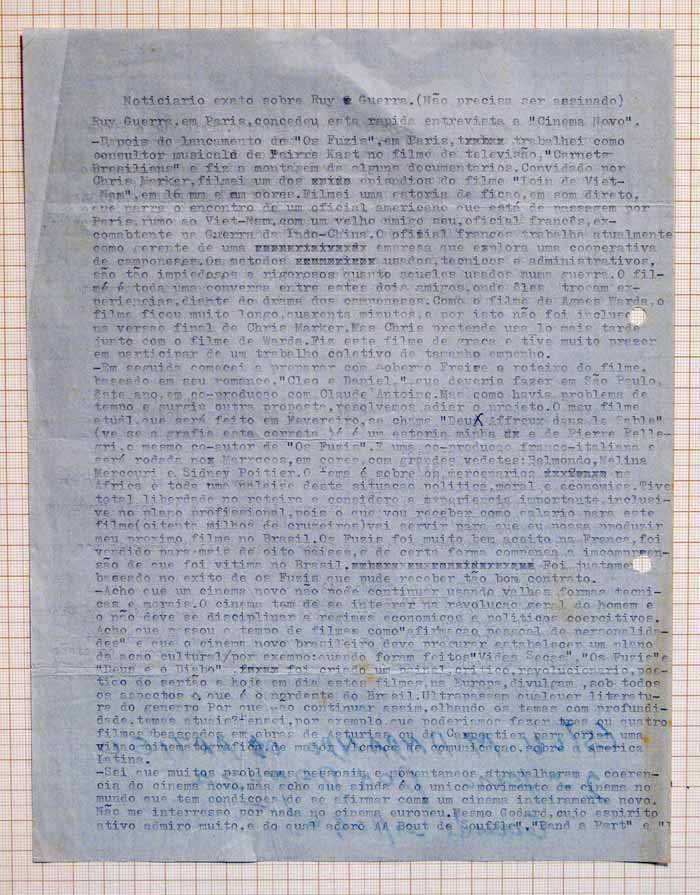 Noticiario exato sobre Ruy Guerra.(Não precisa ser assinado)
Ruy Guerra,em Paris,concedeu esta rapida entrevista a "Cinema Novo".
-Depois do lançamento de "Os Fuzis",em Paris, trabalhei como
consultor musical de Pierre Kast no filme de televisão,"Carnets
Brasiliens" e fiz a montagem de alguns documentarios.Convidado por
Chris Marker,filmei um dos episodios do filme "Loin de Viet-
Nam",em 16 mm e em cores.Filmei uma estoria de ficção,em som direto,
que narra o encontro de um oficial americano que está de passagem por
Paris,rumo ao Viet-Nam,com um velho amigo seu,oficial francês,ex-
comabtente na Guerra da Indo-China.O oficial frances trabalha atualmente
como gerente de uma empresa que explora uma cooperativa
de camponeses.Os metodos usados,tecnicos e administrativos,
são tão impiedosos e rigorosos quanto aqueles usados numa guerra.O fil-
mé é toda uma conversa entre estes dois amigos,onde êles trocam ex-
periencias,diante do drama dos camponeses.Como o filme de Agnes Warda,o
filme ficou muito longo,quarenta minutos,e por isto não foi incluso
na versão final de Chris Marker.Mas Chris pretende usa lo mais tarde
junto com o filme de Warda.Fiz este filme de graça e tive muito prazer
em participar de um trabalho coletivo de tamanho empenho.
-Em seguida comecei a preparar com Roberto Freire o roteiro do filme,
baseado em seu romance,"Cleo e Daniel," que deveria fazer em São Paulo,
êste ano,em co-produção com Claude Antoine.Mas como havia problema de
tempo e surgiu outra proposta,resolvemos adiar o projeto.O meu filme
atual,que será feito em Fevereiro,se chama "Deux Affreux dans le Sable"
(ve se a grafia esta correta )é é um estoria minha e de Pierre Pelle-
gri,o mesmo co-autor de "Os Fuzis".É uma co-produção franco-italiana e
será rodada nos Marrocos,em cores,com grandes vedetes:Belmondo,Melina
Mercouri e Sidney Poitier.O tema é sobre os mercenarios na
Africa e toda uma analise desta situação politica,moral e economica.Tive
total liberdade no roteiro e considero a experiencia importante,inclusi-
ve no plano profissional,pois o que vou receber como salario para este
filme(oitenta milhões de cruzeiros)vai servir para que eu possa produzir
meu proximo filme no Brasil.Os Fuzis foi muito bem aceito na França,foi
vendido para mais de oito países,e de certa forma compensa a incompreen-
são de que foi vitima no Brasil. Foi justamente
baseado no exito de os Fuzis que pude receber tão bom contrato.
-Acho que um cinema novo não pode continuar usando velhas formas tecni-
cas e morais.O cinema tem de se integrar na revolução geral do homem e
o não deve se disciplinar a regimes economicos e politicos coercitivos.
Acho que passou o tempo de filmes como"afirmação pessoal de personalida-
des" e que o cinema novo brasileiro deve procurar estabelecer um plano
de ação cultural/por exemplo:quando foram feitos"Vidas Secas","Os Fuzis"e
"Deus e o Diabo" foi criado um painel critico,revolucionario,poé-
tico do sertão e hoje em dia estes filmes,na Europa,divulgam,sob todos
os aspectos o que é o nordeste do Brasil.Ultrapassam qualquer literatu-
ra do genero. Por que não continuar assim,olhando os temas com profundi-
dade,temas atuais?Pensei,por exemplo,que poderiamos fazer tres ou quatro
filmes,baseados em obras de Asturias ou de Carpentier para criar uma
visão cinematografica,de maior alcance de comunicação,sobre a America
Latina.
-Sei que muitos problemas pessoais e momentaneos,atrapalharam a coeren-
cia do cinema novo,mas acho que ainda é o unico movimento de cinema no
mundo que tem condições de se afirmar como um cinema inteiramente novo.
Não me interresso por nada no cinema europeu.Mesmo Godard,cujo espirito
ativo admiro muito,e do qual adoro AA Bout de Soufflé","Band a Part" e